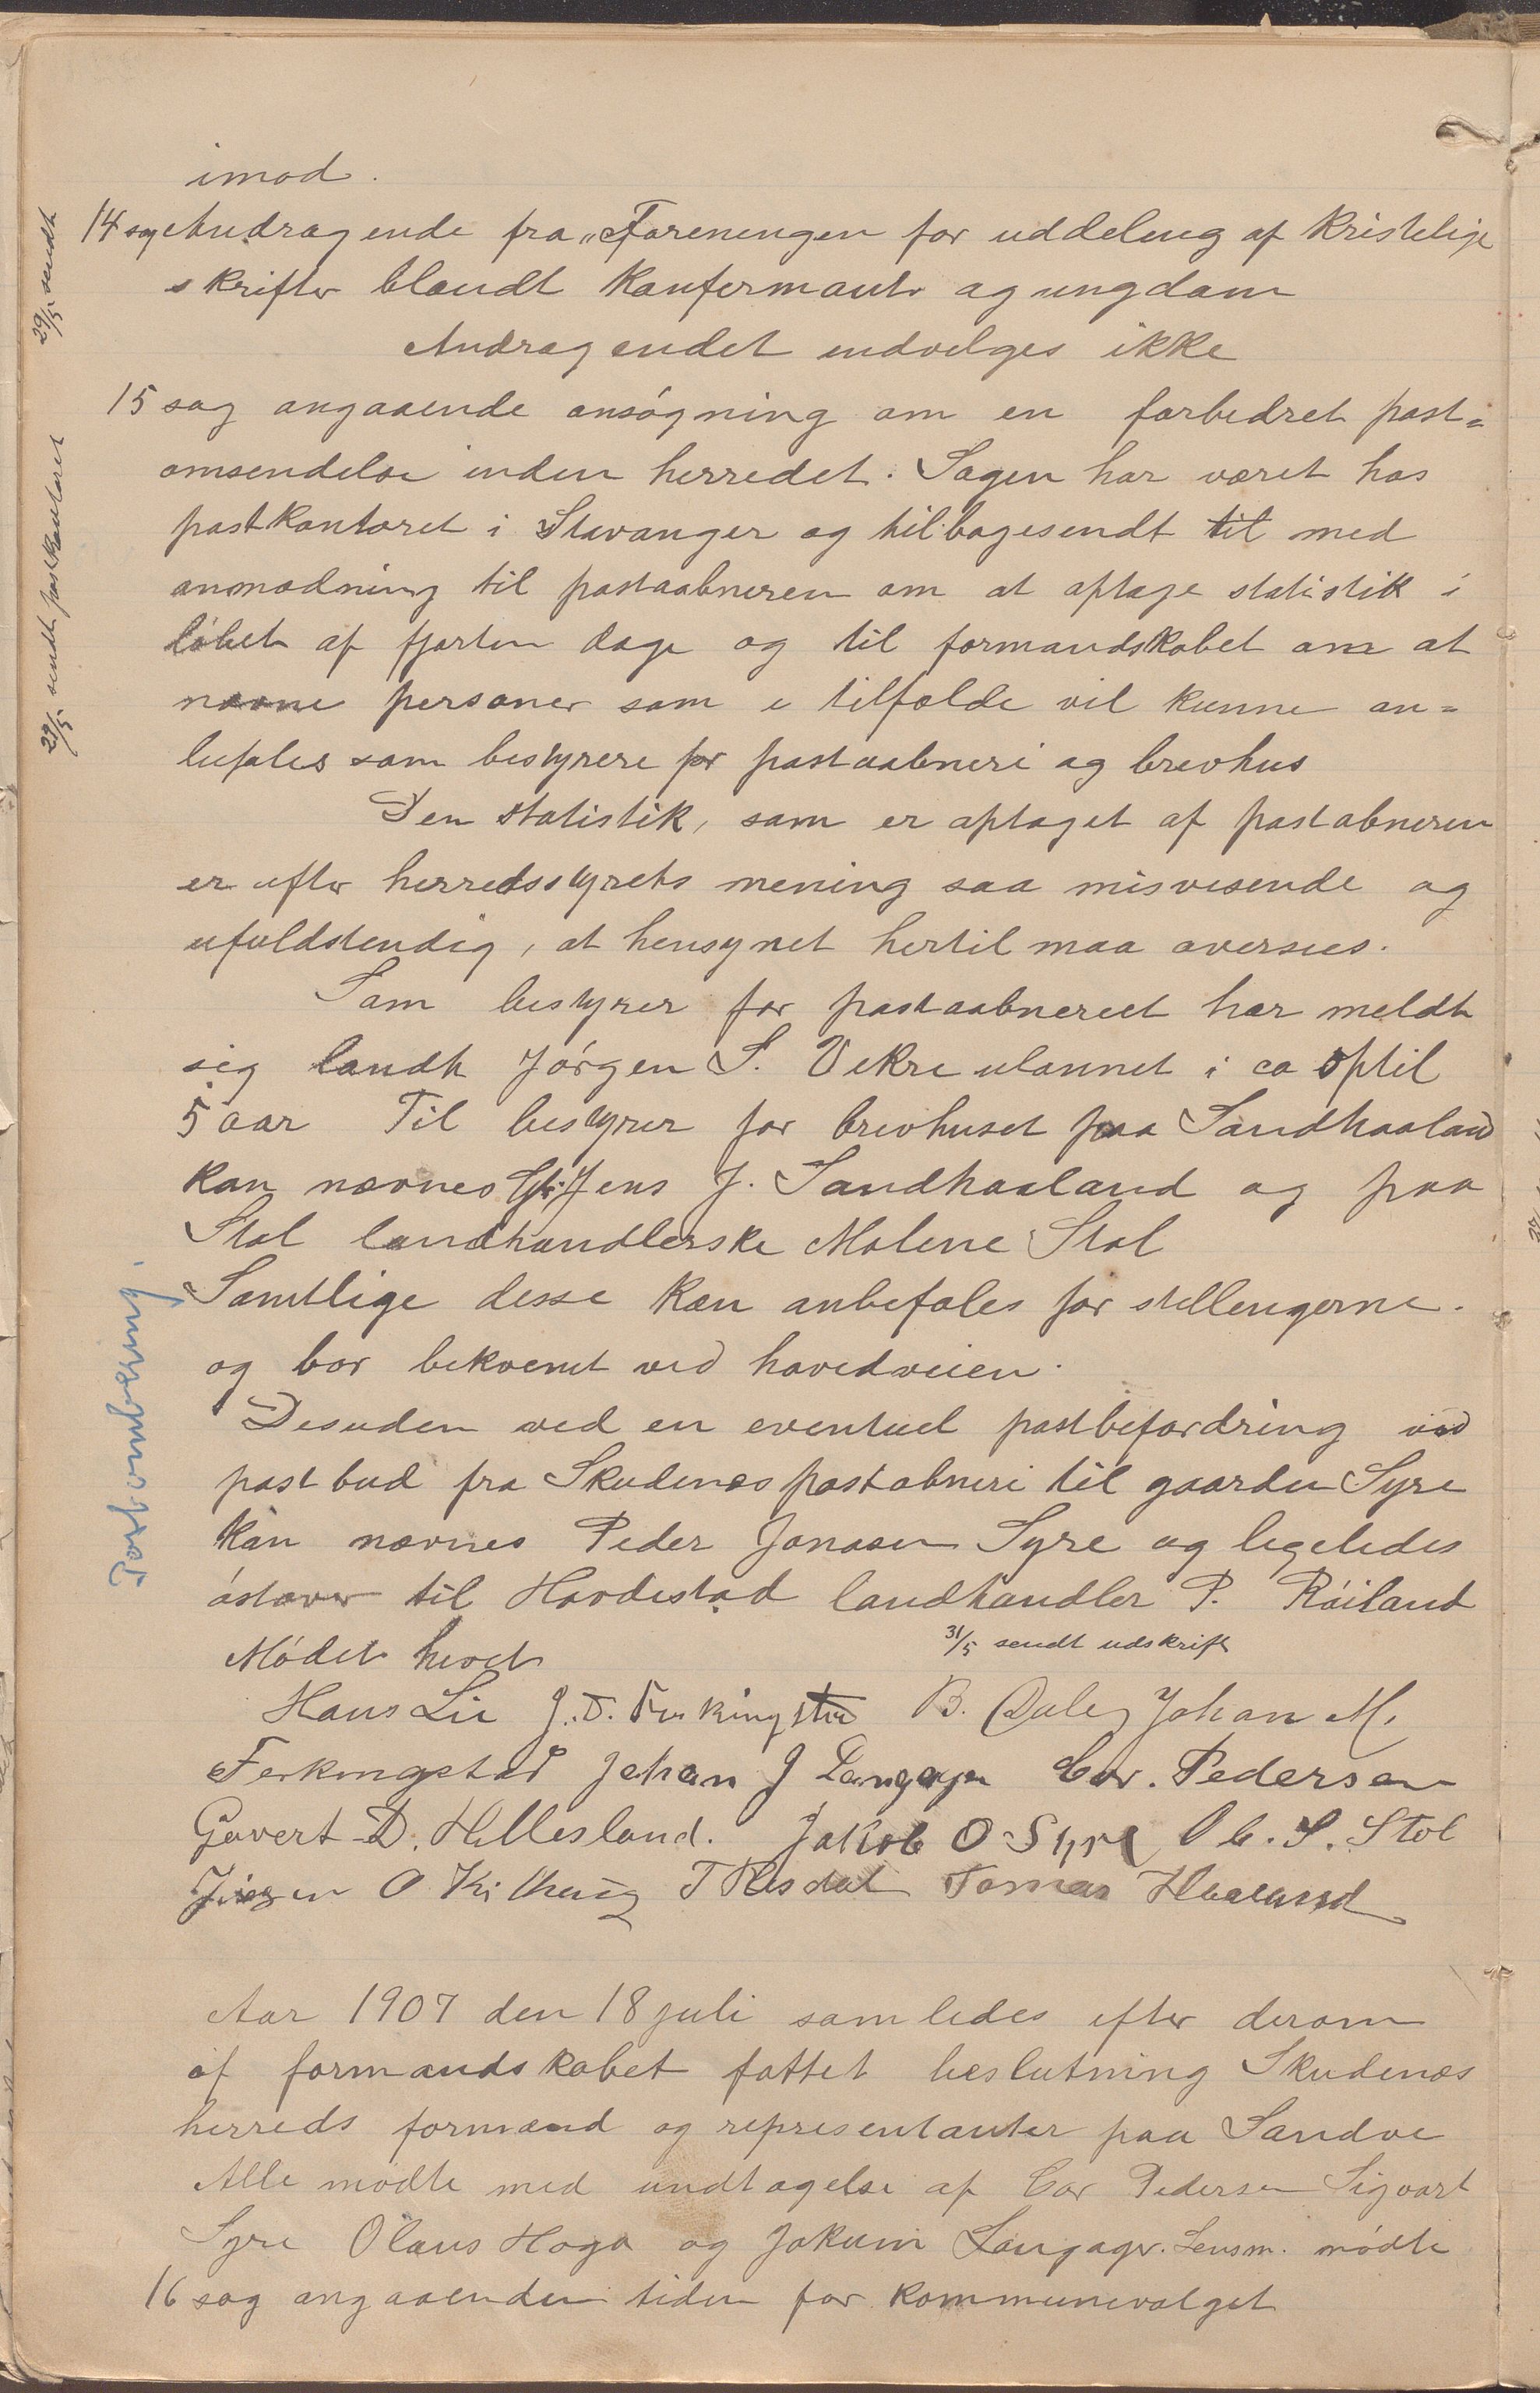 imod.
14 sag Andragende fra „Foreningen for uddeling af kristelige
skrifter blandt konfermanter og ungdom
Andragendet indvilges ikke
15 sag angaaende ansøgning om en forbedret post-
omsendelse inden herredet. Sagen har været hos
postkontoret i Stavanger og tilbagesendt til med
anmodning til postaabneren om at optage statistik i
løbet af fjorten dage og til formandskabet om at
nævne personer som i tilfælde vil kunne an-
befales som bestyrere for postaabneri og brevhus
Den statistik, som er optaget af postabneren
er efter herredsstyrets mening saa misvisende og
ufuldstendig, at hensynet hertil maa oversees.
Som bestyrer for postaabneriet har meldt
sig landh Jørgen S. Vikre ulønnet i ca optil
5 aar Til bestyrer for brevhuset paa Sandhaaland
kan nævnes Jens J. Sandhaaland og paa
Stol landhandlerske Malene Stol
Samtlige disse kan anbefales for stillingerne.
og bor bekvemt ved hovedveien.
Desuden ved en eventuel postbefordring ved
postbud fra Skudenes postabneri til gaarden Syre
kan nævnes Peder Jonasen Syre og ligeledes
østover til Hovdestad landhandler P. Røiland
31/5 sendt udskrift
Mødet hevet
Hans Lie J. D. Ferkingstad B. Dale Johan M.
Ferkingstad Johan J Langager Cor. Pedersen
Govert D. Hillesland. Jakob O Syre O C. S. Stol
Jørgen O Kilheng T Risdal Tomas Haaland
Aar 1907 den 18 juli samledes efter derom
af formandskabet fattet beslutning Skudenes
herreds formænd og representanter paa Sandve
Alle mødte med undtagelse af Cor Pedersen Sigvart
Syre Olaus Hoga og Jokum Langager. Lensm. mødte
16 sag angaaende tiden for kommunevalget
29/5 sendt
29/5 sendt postkontoret
Postombæring.